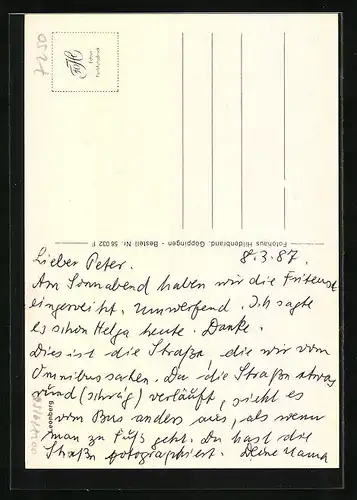 7250
FH
Echte Fotografie
Fotohaus Hildenbrand, Göppingen - Bestell Nr. 58 032 F
8.3.87.
Lieber Peter.
Am Sonnabend haben wir die Friteuse
eingeweiht. Umwerfend. Ich sagte
es schon Helga heute. Danke.
Dies ist die Straße, die wir vom
Omnibus sahen. Da die Straße etwas
rund (schräg) verläuft, sieht es
vom Bus anders aus, als wenn
man zu Fuß geht. Du hast die
Straße fotographiert. Deine Mama
Leonberg